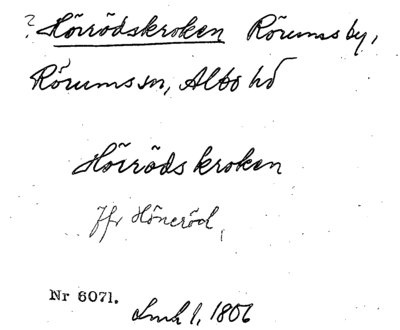 ? Hörrödskroken Rörums by,
Rörums sn, Albo hd
Hörröds kroken
Jfr Höneröd
Nr 6071.
Lmh 1, 1806